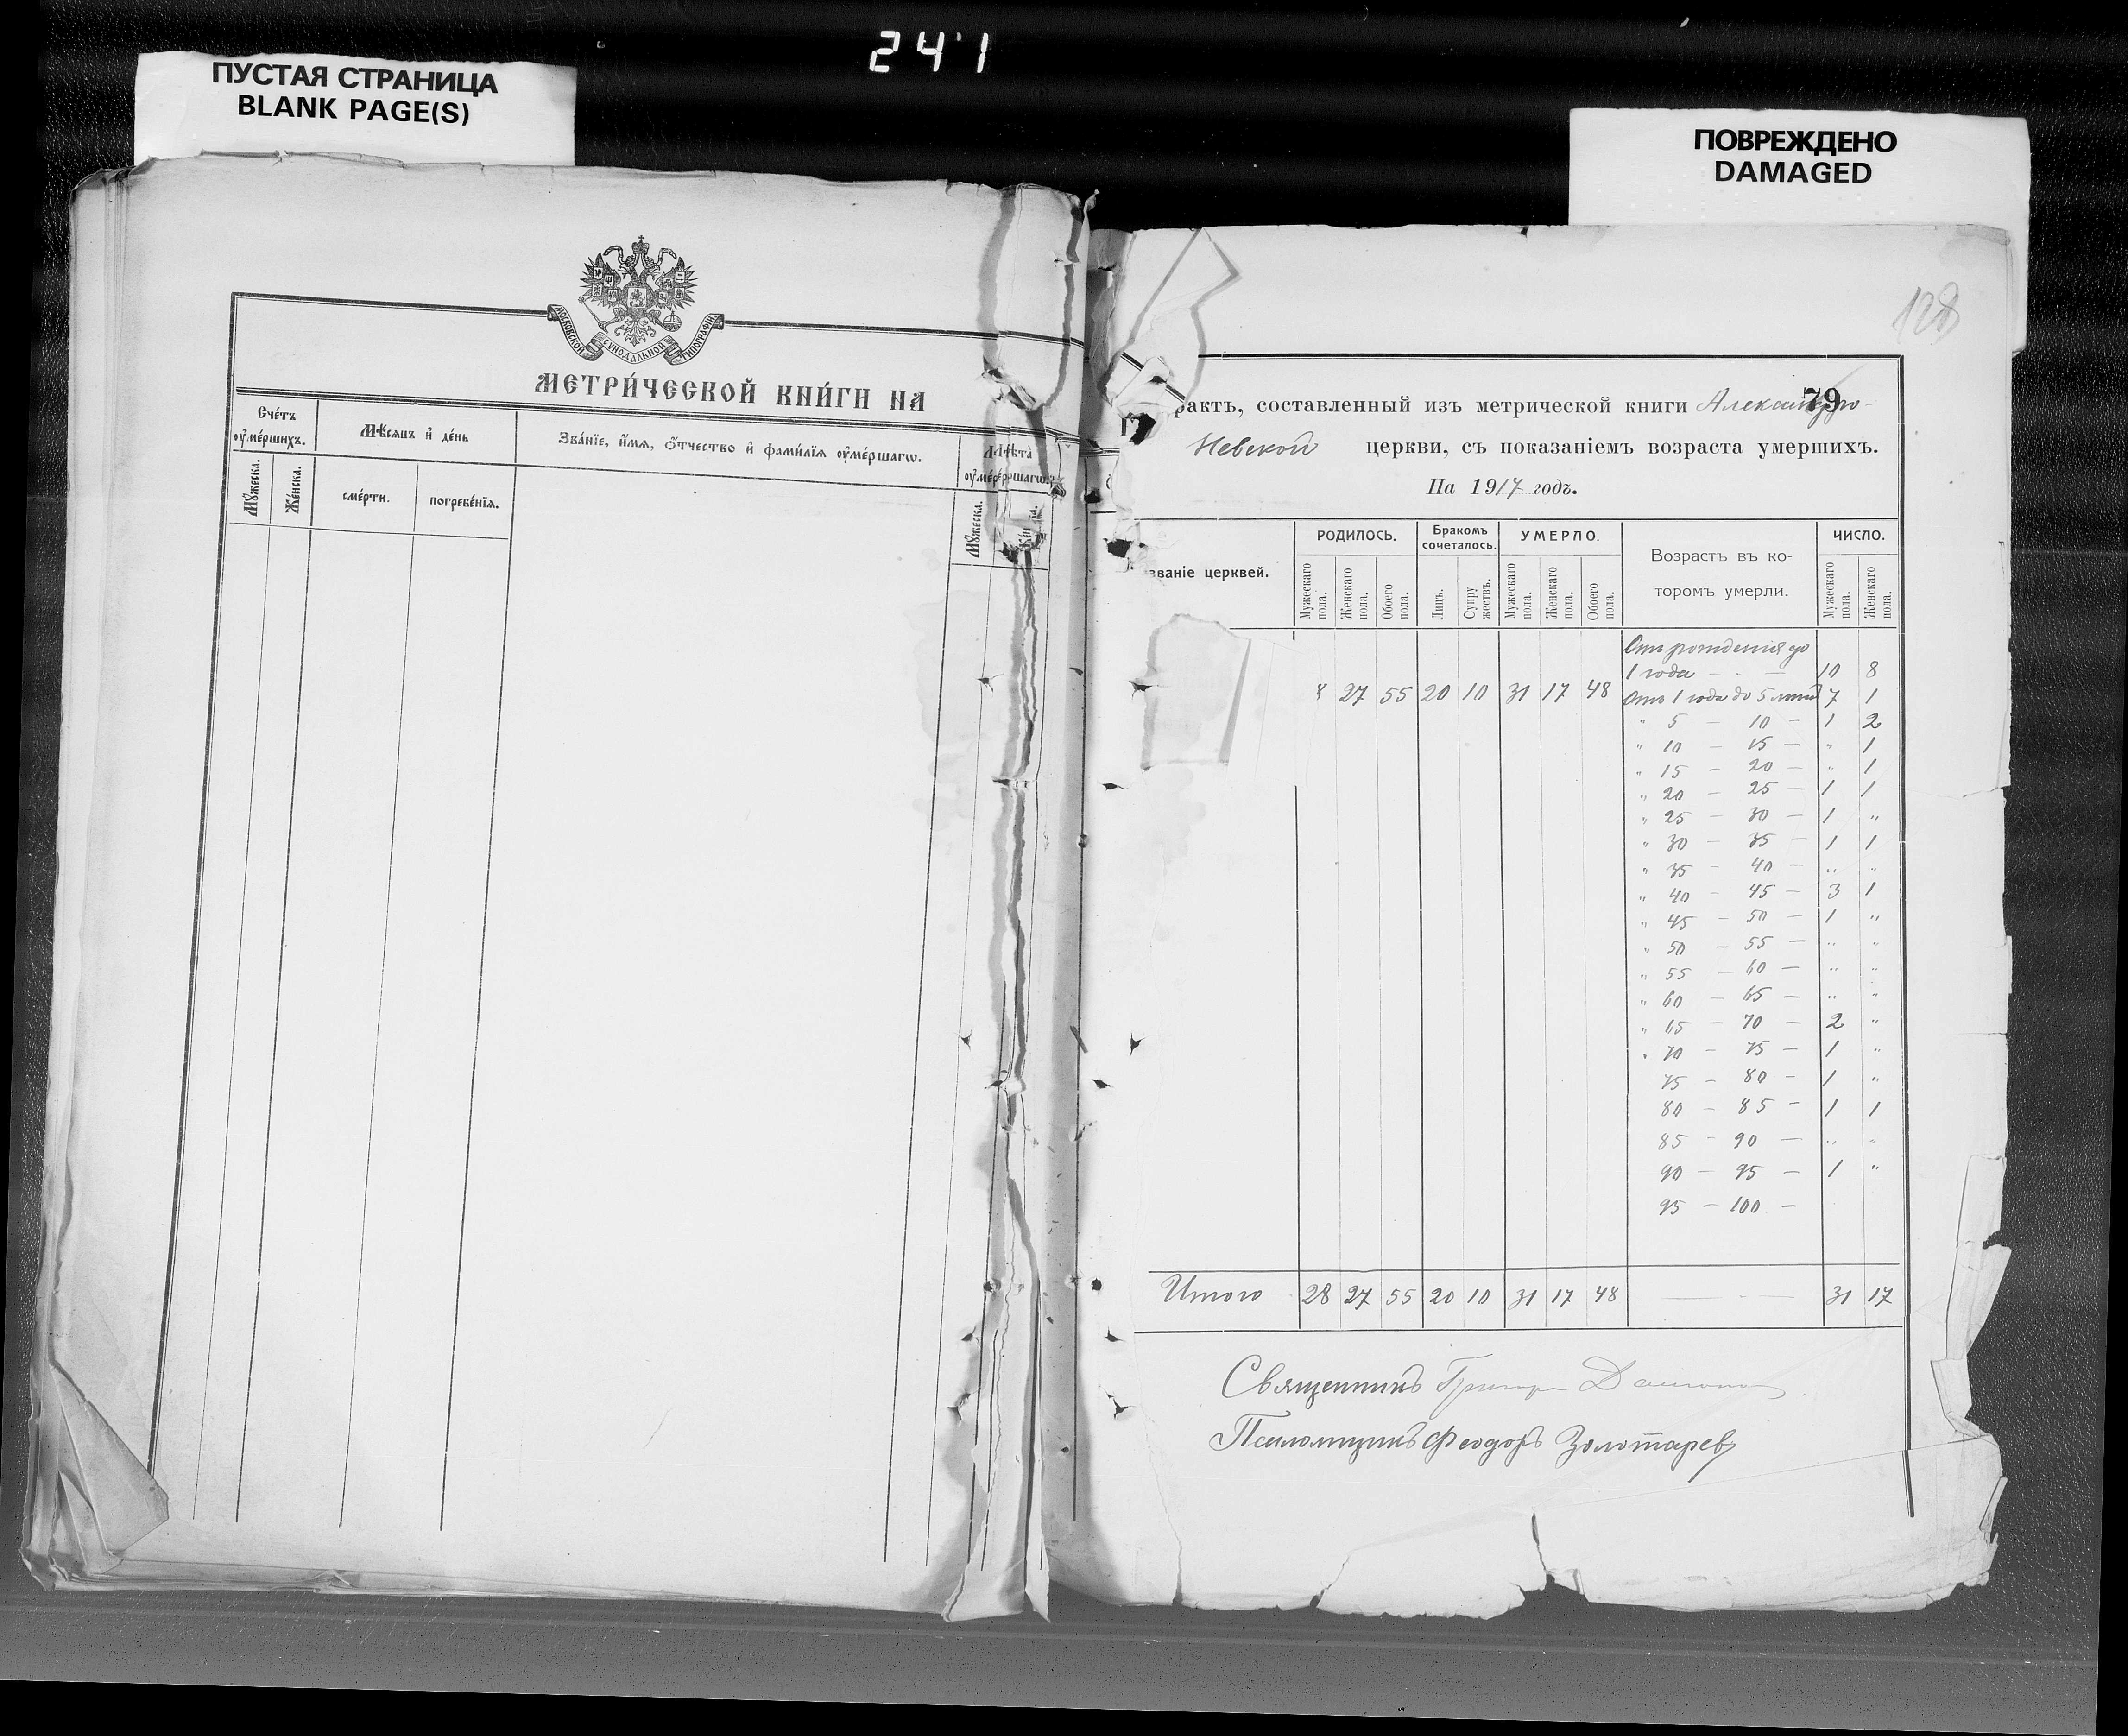 241
ПУСТАЯ СТРАНИЦА
BLANK PAGE(S)
ПОВРЕЖДЕНО
DAMAGED
МОСКОВСКОЙ СѴНОДАЛЬНОЙ ТИПОГРАФІИ
МЕТРИ́ЧЕСКОЙ КНИ́ГИ НА
Сче́тъ ᲂу҆ме́ршихъ.
Мѣ́сѧцъ и҆ де́нь
Зва́нїе, и҆́мѧ, ѻ҆́тчество и҆ фамил́їѧ ᲂу҆ме́ршагѡ.
Лѣ́та ᲂу҆ме́ршагѡ.
Мꙋ́жеска.
Же́нска.
сме́рти.
погребе́нїѧ.
Мꙋ́жеска.
128
79
рактъ, составленный изъ метрической книги Александро-
Невской церкви, съ показаніемъ возраста умершихъ.
На 1917 годъ.
званіе церквей.
РОДИЛОСЬ.
Бракомъ сочеталось.
УМЕРЛО.
Возрастъ въ ко-
торомъ умерли.
ЧИСЛО.
Мужескаго пола.
Женскаго пола.
Обоего пола.
Лицъ.
Супружествъ.
Мужескаго пола.
Женскаго пола.
Обоего пола.
Мужескаго пола.
Женскаго пола.
Отъ рожденія до
1 года — 10 8
8 27 55 20 10 31 17 48 Отъ 1 года до 5 лѣтъ 7 1
" 5 — 10 — 1 2
" 10 — 15 — " 1
" 15 — 20 — " 1
" 20 — 25 — 1 1
" 25 — 30 — 1 "
" 30 — 35 — 1 1
" 35 — 40 — " "
" 40 — 45 — 3 1
" 45 — 50 — 1 "
" 50 — 55 — " "
" 55 — 60 — " "
" 60 — 65 — " "
" 65 — 70 — 2 "
" 70 — 75 — 1 "
75 — 80 — 1 "
80 — 85 — 1 1
85 — 90 — " "
90 — 95 — 1 "
95 — 100 —
Итого 28 27 55 20 10 31 17 48 — 31 17
Священникъ
Псаломщикъ Феодоръ Золотаревъ